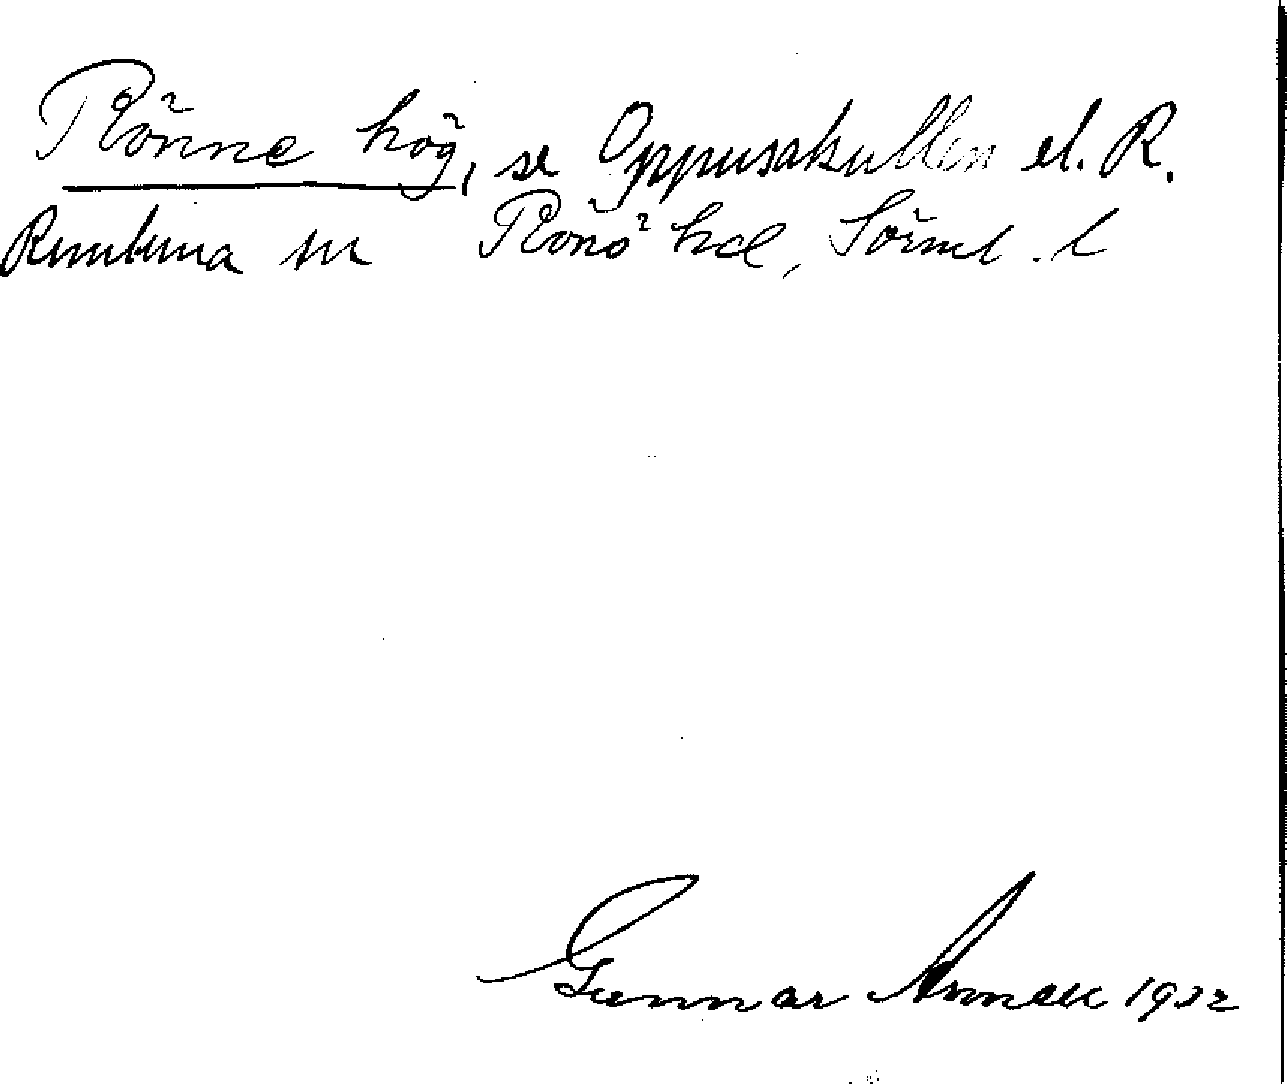 Rönne hög, se Oppusakullen el. R.
sn Rönö hd, Sörml. l
Gunnar 1932